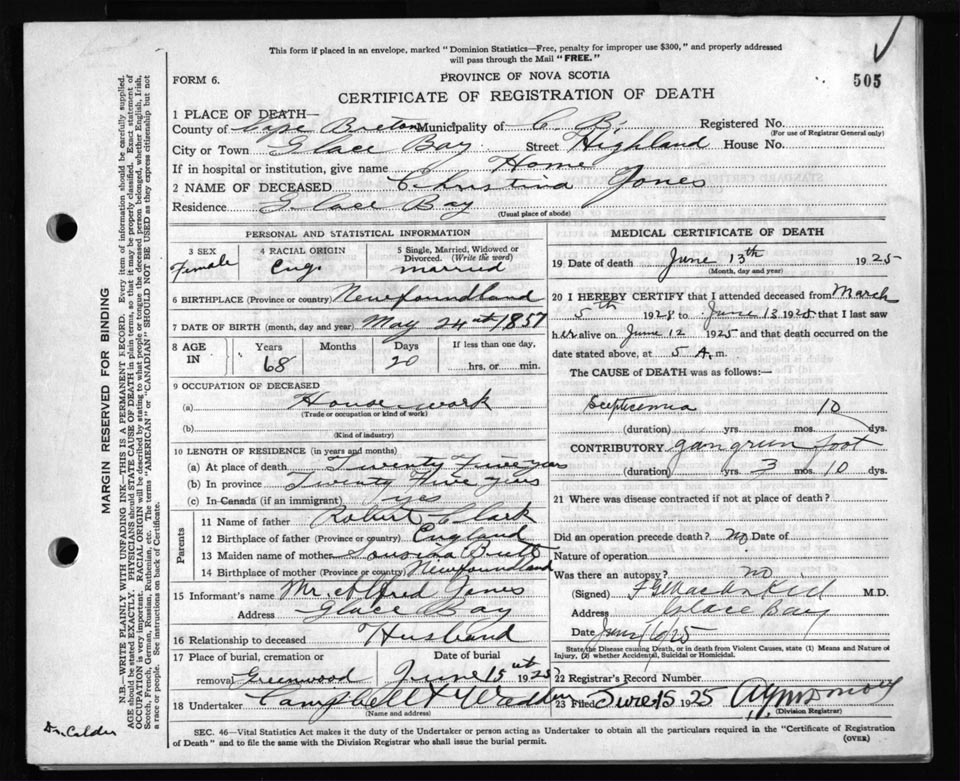 This form if placed in an envelope, marked "Dominion Statistics—Free, penalty for improper use $300," and properly addressed
will pass through the Mail "FREE."
FORM 6.
PROVINCE OF NOVA SCOTIA
505
CERTIFICATE OF REGISTRATION OF DEATH
1 PLACE OF DEATH—
County of Cape Breton Municipality of C. B. Registered No.
(For use of Registrar General only)
City or Town Glace Bay Street Highland House No.
If in hospital or institution, give name Home
2 NAME OF DECEASED Christina Jones
Residence Glace Bay
(Usual place of abode)
PERSONAL AND STATISTICAL INFORMATION
3 SEX
Female
4 RACIAL ORIGIN
Eng.
5 Single, Married, Widowed or
Divorced. (Write the word)
married
6 BIRTHPLACE (Province or country) Newfoundland
7 DATE OF BIRTH (month, day and year) May 24 1857
8 AGE
IN
Years
68
Months
Days
20
If less than one day,
hrs. or min.
9 OCCUPATION OF DECEASED
(a) Housework
(Trade or occupation or kind of work)
(b)
(Kind of industry)
10 LENGTH OF RESIDENCE (in years and months)
(a) At place of death Twenty Five yrs
(b) In province Twenty Five yrs
(c) In Canada (if an immigrant) yes
Parents
11 Name of father Robert Clark
12 Birthplace of father (Province or country) England
13 Maiden name of mother
14 Birthplace of mother (Province or country) Newfoundland
15 Informant's name Mr. Alfred Jones
Address Glace Bay
16 Relationship to deceased Husband
17 Place of burial, cremation or
removal Greenwood
Date of burial
June 15 1925
18 Undertaker Campbell & Wadden
(Name and address)
MEDICAL CERTIFICATE OF DEATH
19 Date of death June 13th 1925
(Month, day and year)
20 I HEREBY CERTIFY that I attended deceased from March
5th 1925 to June 13 1925 that I last saw
her alive on June 12 1925 and that death occurred on the
date stated above, at 5 A. m.
The CAUSE of DEATH was as follows:—
Septicemia 10
(duration) yrs. mos. dys.
CONTRIBUTORY gangreen foot
(duration) yrs. 3 mos. 10 dys.
21 Where was disease contracted if not at place of death?
Did an operation precede death? no Date of
Nature of operation
Was there an autopsy? no
(Signed) M.D.
Address Glace Bay
Date June 16/25
State the Disease causing Death, or in death from Violent Causes, state (1) Means and Nature of
Injury, (2) whether Accidental, Suicidal or Homicidal.
22 Registrar's Record Number
23 Filed June 15 1925
(Division Registrar)
SEC. 46—Vital Statistics Act makes it the duty of the Undertaker or person acting as Undertaker to obtain all the particulars required in the "Certificate of Registration
of Death" and to file the same with the Division Registrar who shall issue the burial permit.
(OVER)
MARGIN RESERVED FOR BINDING
N.B.—WRITE PLAINLY WITH UNFADING INK—THIS IS A PERMANENT RECORD. Every item of information should be carefully supplied.
AGE should be stated EXACTLY. PHYSICIANS should STATE CAUSE OF DEATH in plain terms, so that it may be properly classified. Exact statement of
OCCUPATION is very important. RACIAL ORIGIN will be described by stating to what people or tongue the deceased person belonged, whether English, Irish,
Scotch, French, German, Russian, Ruthenian, etc. The terms "AMERICAN" or "CANADIAN" SHOULD NOT BE USED as they express citizenship but not
a race or people. See instructions on back of Certificate.
Dr. Calder